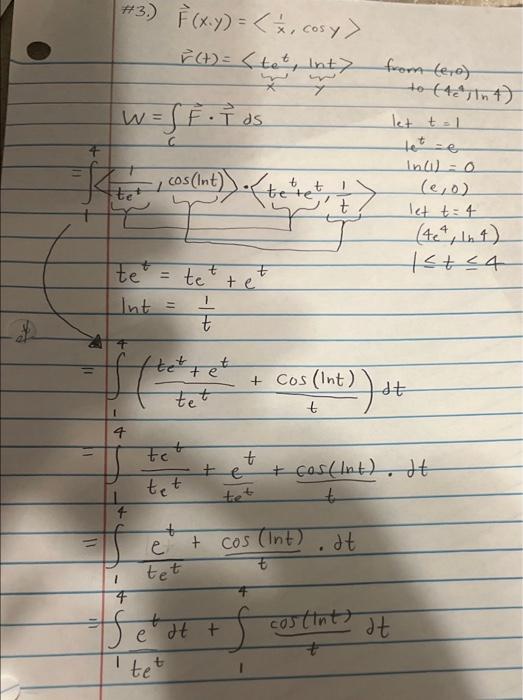 #3.) F⃗(x,y) = <1/x, cos y>
r⃗(t) = <te^t, lnt> from (e,0)
x y to (4e^4, ln 4)
W = ∫_C F⃗ · T⃗ ds let t = 1
1e^t = e
ln(1) = 0
= ∫_1^4 <1/te^t, cos(lnt)> · <te^t+e^t, 1/t> (e,0)
let t = 4
(4e^4, ln 4)
1 ≤ t ≤ 4
te^t = te^t + e^t
lnt = 1/t
= ∫_1^4 ((te^t + e^t)/te^t + cos(lnt)/t) dt
= ∫_1^4 te^t/te^t + e^t/te^t + cos(lnt)/t . dt
= ∫_1^4 e^t/te^t + cos(lnt)/t . dt
= ∫_1^4 e^t/te^t dt + ∫_1^4 cos(lnt)/t dt